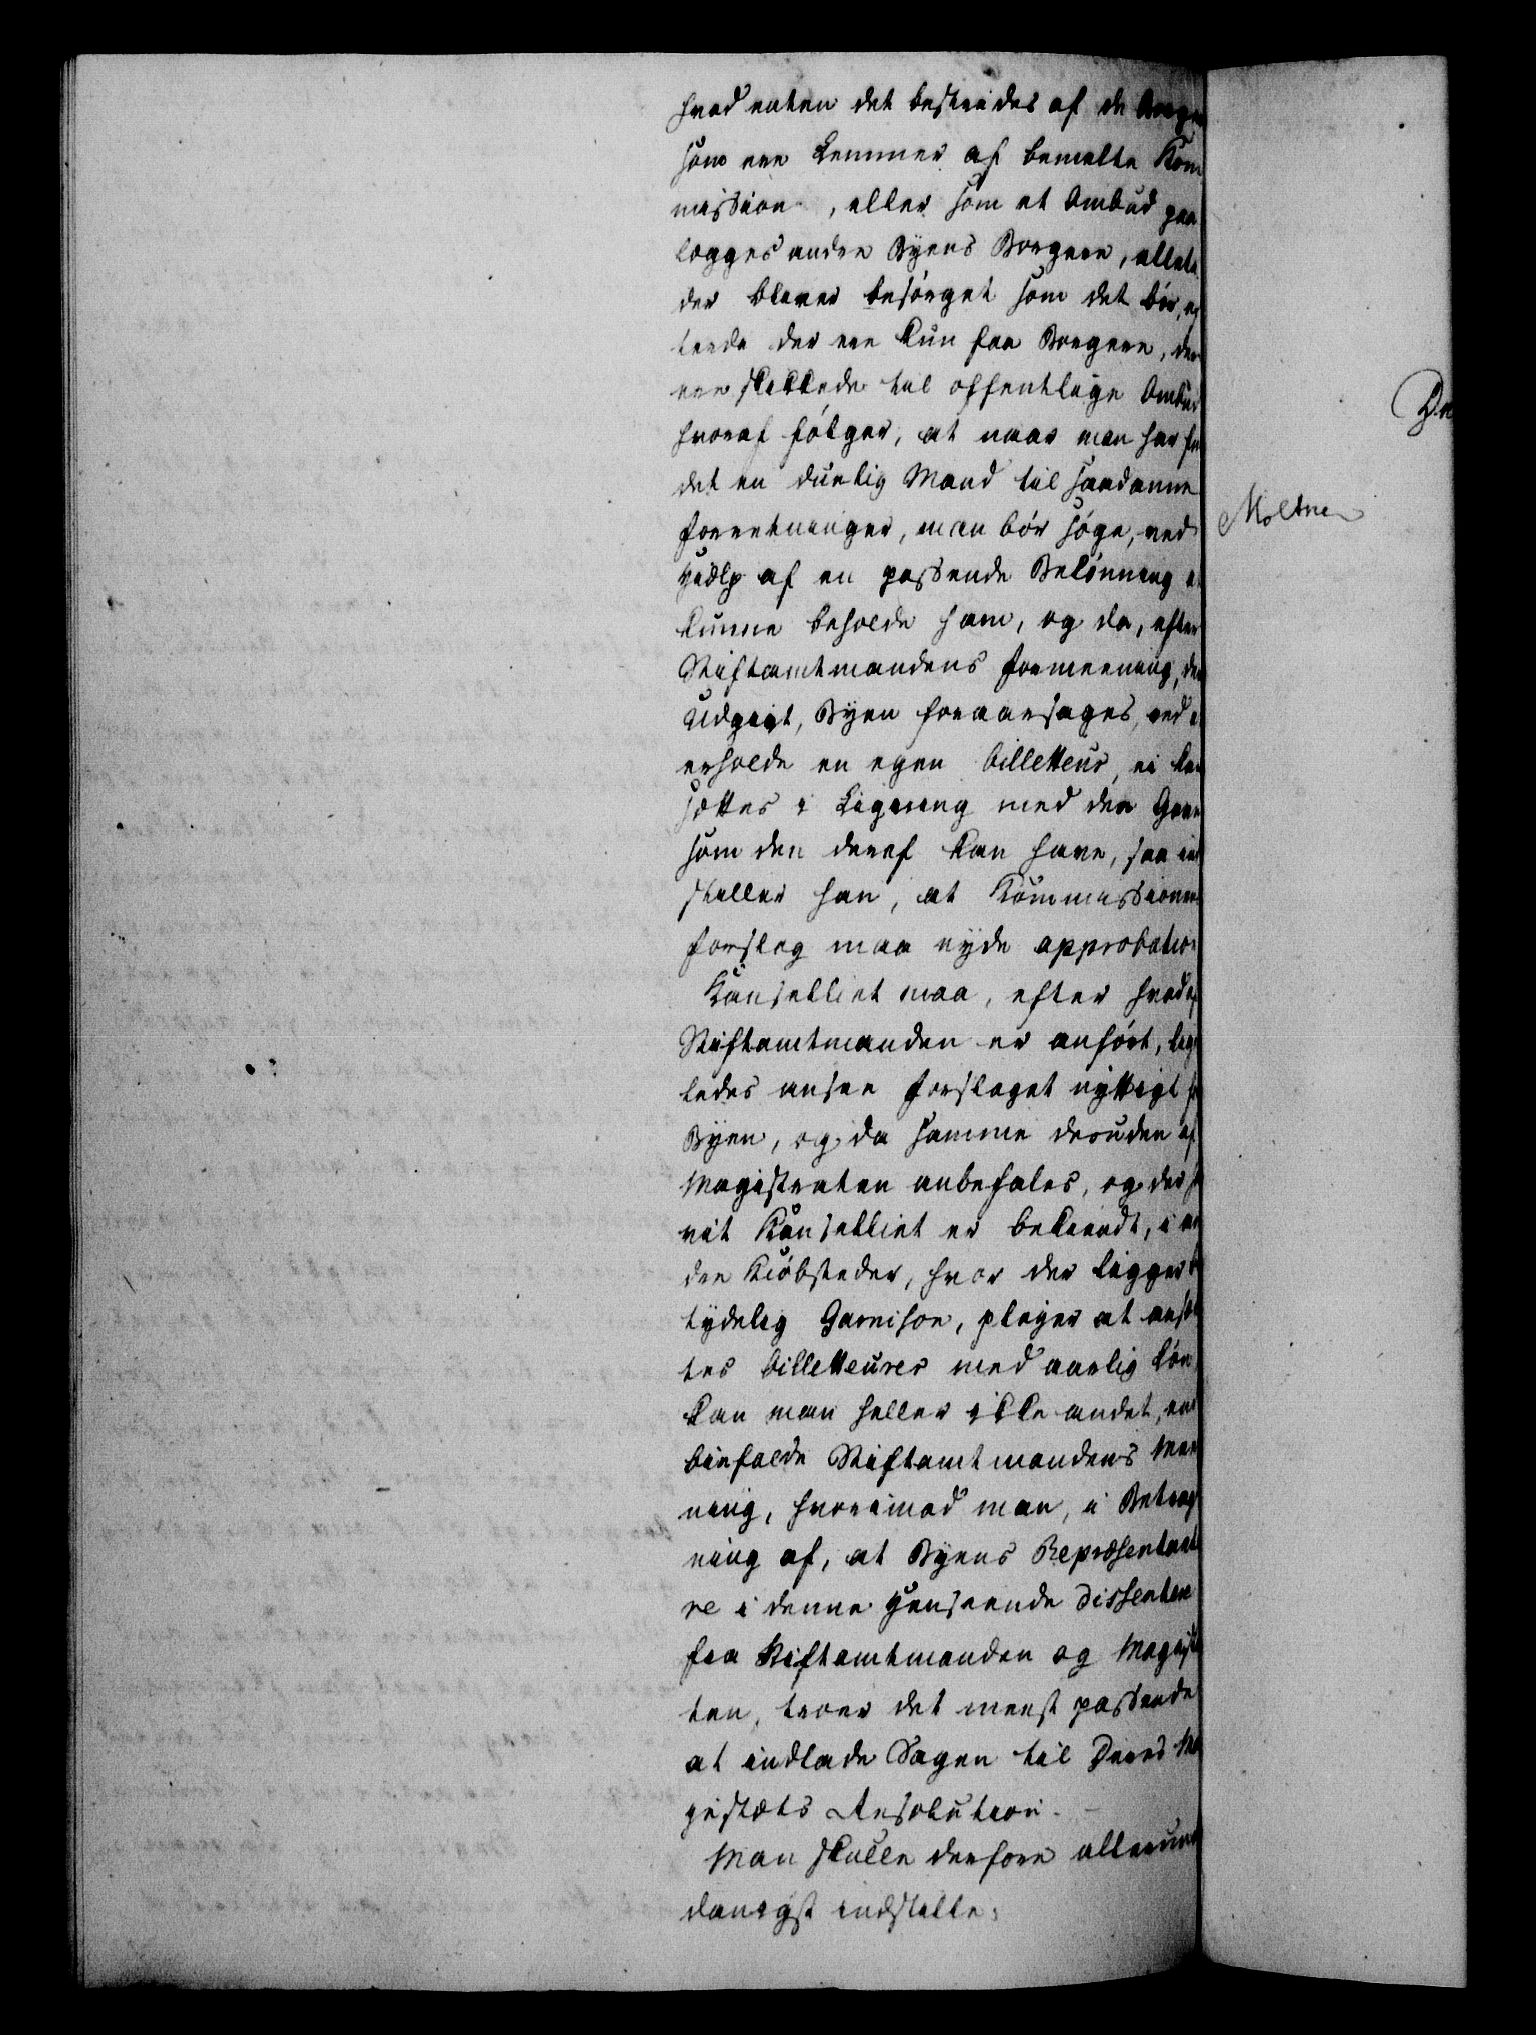 hvad enten det bestrides af de Borge
som ere Lemmer af bemelte Kom
mission, eller som et Ombud paa
lægges andre Byens Borgere, allet
der bliver besörget som det bör, ef
terdi der ere kun faa Borgere, der
ere skikkede til offentlige Ombud
hvoraf fölger, at naar man har fun
det en duelig Mand til saadanne
Forretninger, man bör söge, ved
Hielp af en passende Belönning at
kunne beholde ham, og da, efter
Stiftamtmandens Formeening, den
Udgivt, Byen foraarsages, ved at
erholde en egen billetteur, ei kan
sættes i Ligning med den Gavn
som den deraf kan have, saa ind
stiller han, at Kommissionens
Forslag maa nyde approbation
Kanselliet maa, efter hvad af
Stiftamtmanden er anfört, lige
ledes ansee Forslaget nyttigt for
Byen, og da samme desuden af
Magistraten anbefales, og der saa
vit Kanselliet er bekiendt, i an
dre Kiöbsteder, hvor der ligger be
tydelig Garnison, pleyer at ansæt
tes billetteurer med aarlig Lön
kan man heller ikke andet, end
bifalde Stiftamtmandens Mee
ning, hvorimod man, i Betragt
ning af, at Byens Repræsentant
re i denne Henseende dissentere
fra Stiftamtmanden og Magistra
ten, troer det meest passende
at indlade Sagen til Deres Ma
jestæts Resolution.
Man skulle derfore allerund
danigst indstille:
Moltke